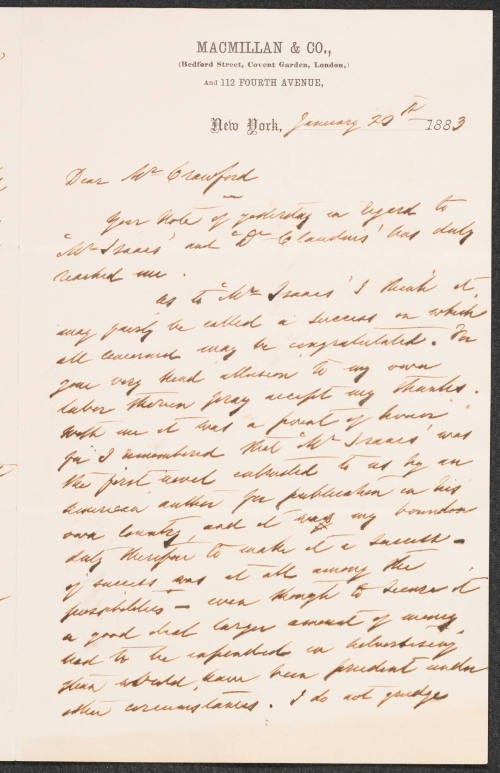 MACMILLAN & CO.,
(Bedford Street, Covent Garden, London,)
AND 112 FOURTH AVENUE,
New York, January 20th 1883
Dear Mr Crawford
Your note of yesterday in regard to
"Mr Isaacs" and "Dr Claudius" has duly
reached me.
As to "Mr Isaacs" I think it
may fairly be called a success on which
all concerned may be congratulated. For
your very kind allusion to my own
labor therein pray accept my thanks.
With me it was a point of honor
for I remembered that "Mr Isaacs" was
the first novel entrusted to us by an
American author for publication in his
own country, and it was my bounden
duty therefore to make it a success –
if success was at all among the
possibilities – even though to secure it
a good deal larger amount of money
had to be expended in advertising
than would, have been prudent under
other circumstances. I do not grudge